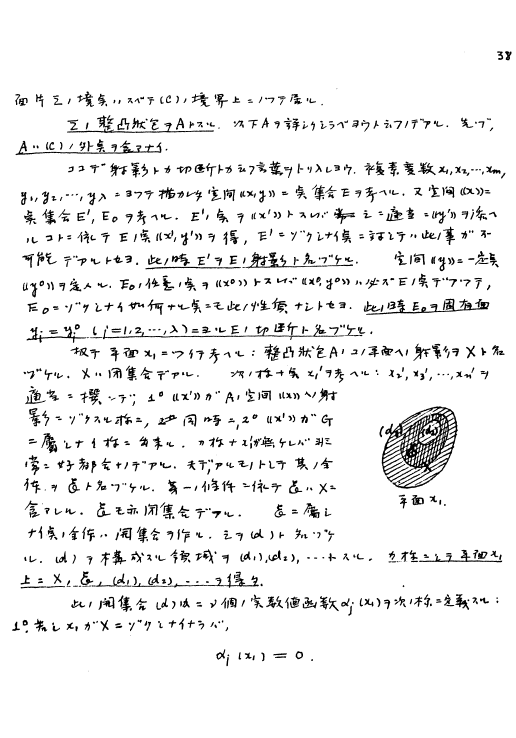 38
面片Σノ境点ハスベテ(C)ノ境界上ニノツテ居ル.
Σノ整凸状包ヲAトスル. 次下Aヲ詳シクシラベヨウト云フノデアル. 先ヅ,
Aハ(C)ノ外点ヲ含マナイ.
ココデ射影トカ切断トカ云フ言葉ヲトリ入レヨウ. 複素変数x₁,x₂,…,xₘ,
y₁,y₂,…,y_λニヨツテ描カレタ空間((x,y))ニ点集合Eヲ考ヘル. 又空間((x))ニ
点集合E′, E₀ヲ考ヘル. E′ノ点ヲ((x′))トスレバ之ニ適当ニ((y′))ヲ添ヘ
ルコトニ依テEノ点((x′,y′))ヲ得, E′ニゾクシナイ点ニ対シテハ此ノ事ガ不
可能デアルトセヨ. 此ノ時E′ヲEノ射影ト名ヅケル. 空間((y))ニ一定点
((y⁰))ヲ定メル. E₀ノ任意ノ点ヲ((x⁰))トスレバ((x⁰,y⁰))ハ必ズEノ点デアツテ,
E₀ニゾクシナイ如何ナル点ニモ此ノ性質ナシトセヨ. 此ノ時E₀ヲ固有面
yⱼ = yⱼ⁰ (j=1,2,…,λ)ニヨルEノ切断ト名ヅケル.
扨テ平面x₁ニツイテ考ヘル: 整凸状包Aノコノ平面ヘノ射影ヲXト名
ヅケル. Xハ閉集合デアル. 次ノ様ナ点x₁′ヲ考ヘル: x₂′,x₃′,…,xₙ′ヲ
適当ニ撰ンデ, 1°((x′))ガAノ空間((x))ヘノ射
影ニゾクスル様ニ, 同時ニ, 2°((x′))ガG
ニ属シナイ様ニ出来ル. カ様ナx₁′ガ無ケレバ非
常ニ好都合ナノデアル. 夫デアルモノトシテ其ノ全
体ヲ　ト名ヅケル. 第一ノ条件ニ依テ　ハXニ
含マレル. 　モ亦閉集合デアル. 　ニ属シ
ナイ点ノ全体ハ開集合ヲ作ル. 之ヲ(α)ト名ヅケ
ル. (α)ヲ構成スル領域ヲ(α₁),(α₂),……トスル. カ様ニシテ平面x₁
上ニX, 　, (α₁),(α₂),……ヲ得タ.
此ノ開集合(α)ニ個ノ実数値函数αⱼ(x₁)ヲ次ノ様ニ定義スル:
1° 若シx₁ガXニゾクシナイナラバ,
αⱼ(x₁) = 0.
(α₁)
(α₂)
X
平面x₁.